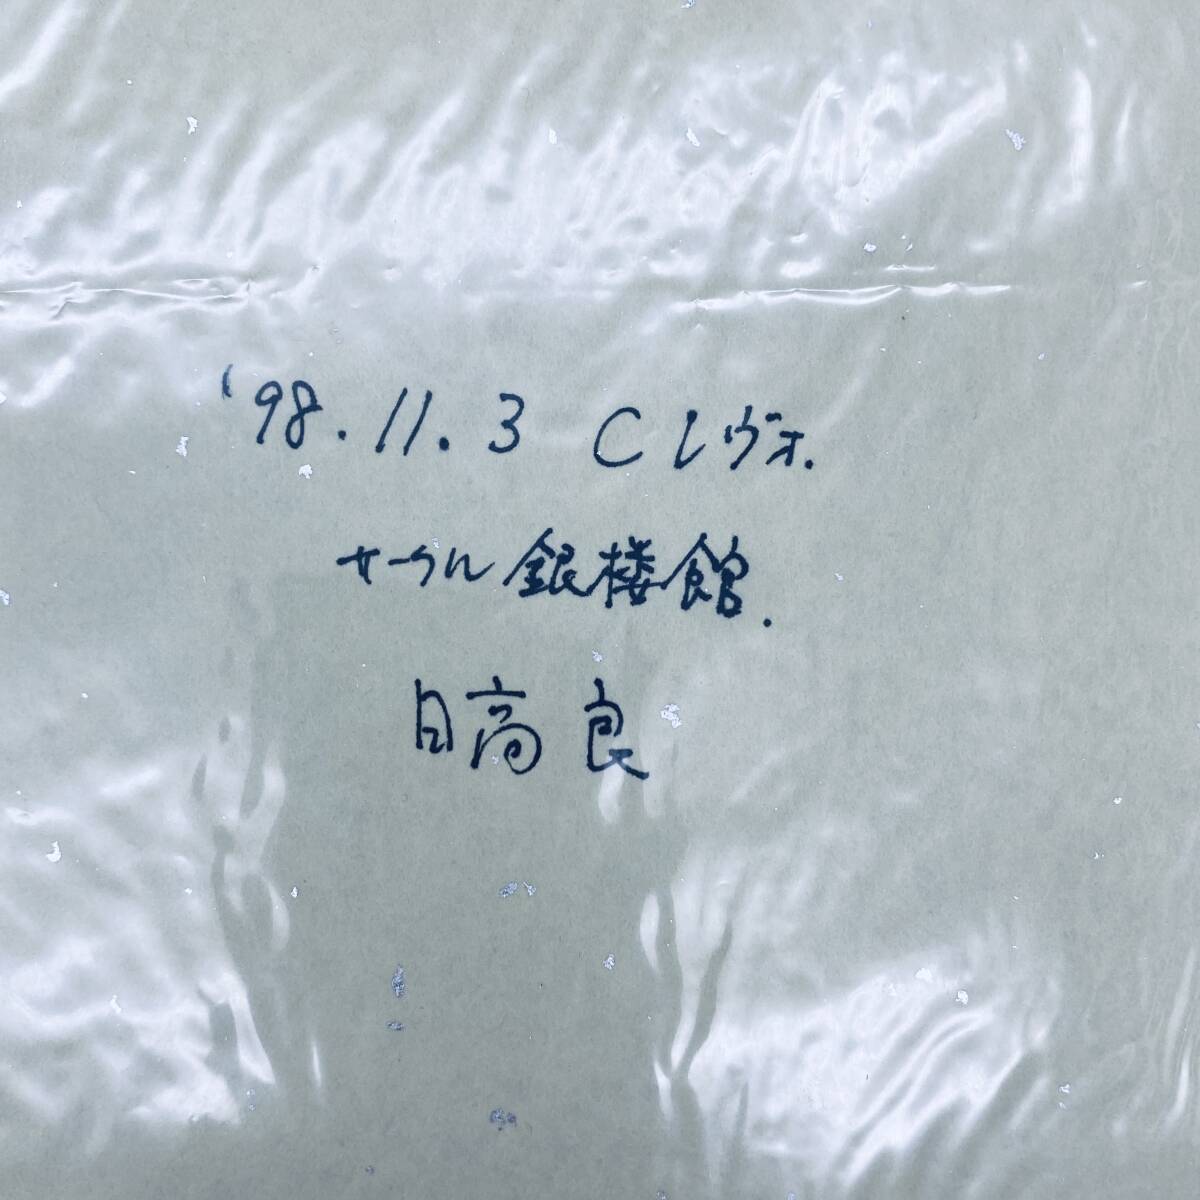 '98.11.3 Cレヴォ.
サークル 銀楼館.
日高 良